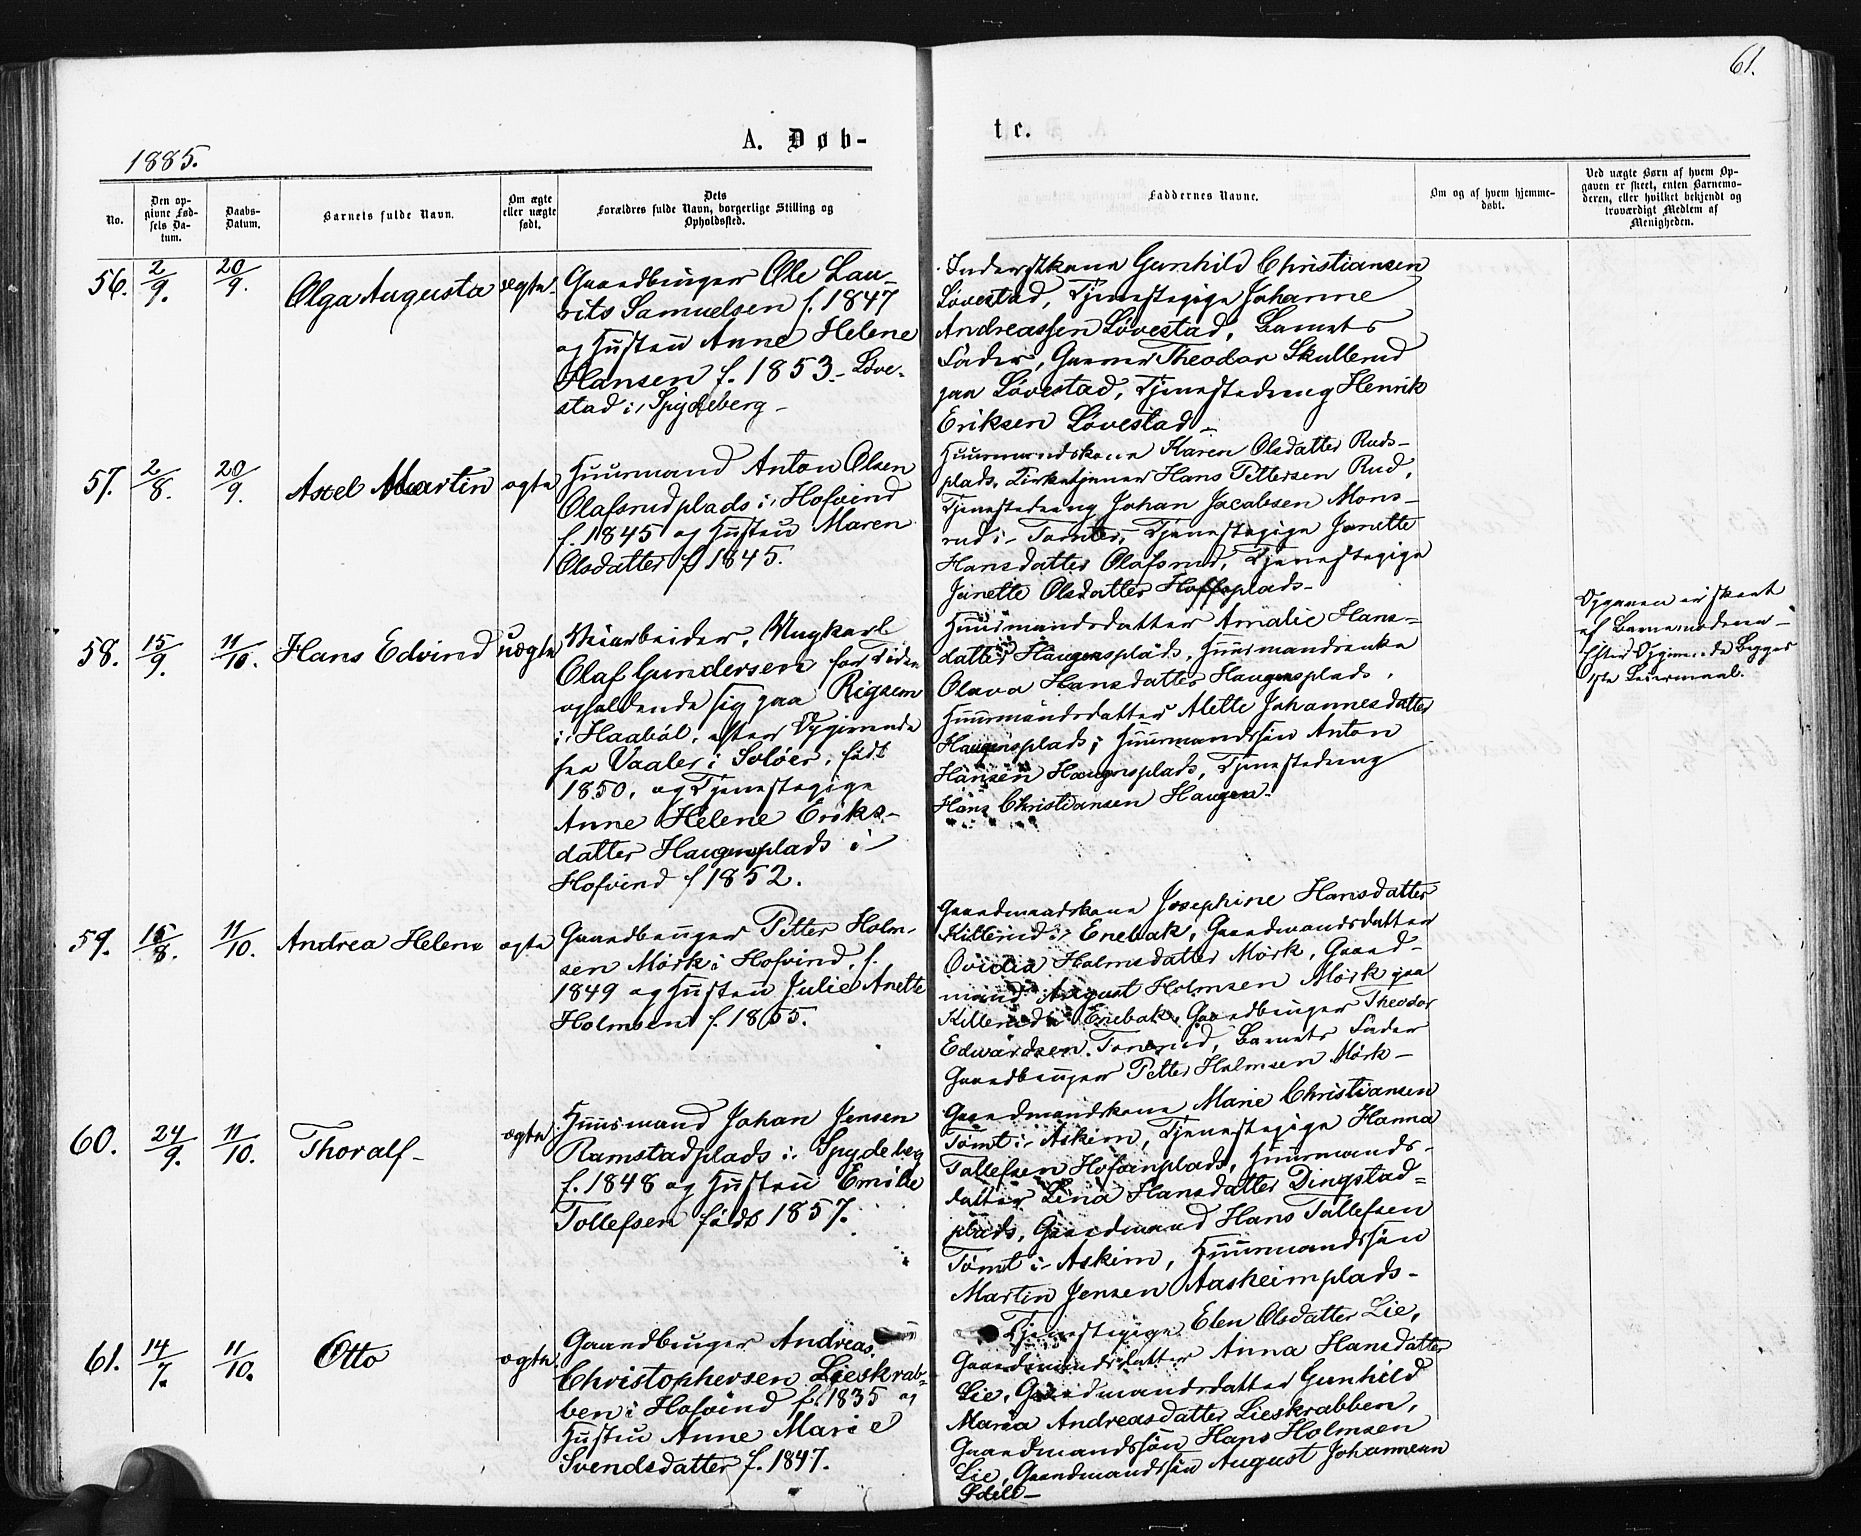 61.
A. Døb-
te.
1885.
No.
Den op-
givne Fød-
sels Da-
tum.
Daabs-
Datum.
Barnets fulde Navn.
Om ægte
eller uægte
født.
Dets
Forældres fulde Navn, borgerlige Stilling og
Opholdssted.
Faddernes Navne.
Om og af hvem hjemme-
døbt.
Ved uægte Børn af hvem Op-
gaven er skeet, enten Barnemo-
deren, eller hvilket bekjendt og
troværdigt Medlem af
Menigheden.
56. 2/9. 20/9. Olga Augusta ægte.
Gaardbruger Ole Lau-
rits Samuelsen f. 1847
og Hustru Anne Helene
Hansen f. 1853 - Løve-
stad i Spydeberg -
Gunhild Christiansen
Løvestad, Tjenestepige Johanne
Andreassen Løvestad, Barnets
Fader, Theodor Skullerud
paa Løvestad, Tjenestedreng Henrik
Eriksen Løvestad -
57. 2/8. 20/9. Axel Martin ægte
Huusmand Anton Olsen
Olafsrudplads i Hofvind
f. 1845 og Hustru Maren
Olsdatter f 1845.
Huusmandskone Karen Olsdatter Ruds-
plads, Kirketjener Hans Pettersen Rud,
Tjenestedreng Johan Jacobsen Mons-
rud i Tomter, Tjenestepige Janette
Hansdatter Olafsrud, Tjenestepige
Janette Olsdatter Hoffsplads -
58. 15/9. 11/10. Hans Edvind uægte
Veiarbeider, Ungkarl
Olaf Gundersen for Tiden
opholdende sig paa Rigsem
i Haabøl, efter Opgivende
fra Vaaler i Soløer, født
1850, og Tjenestepige
Anne Helene Eriks-
datter Haugensplads i
Hofvind f 1852.
Huusmandsdatter Amalie Hans-
datter Haugensplads, Huusmandsenke
Olava Hansdatter Haugensplads,
Huusmandsdatter Alette Johannesdatter
Haugensplads, Huusmandssøn Anton
Hansen Haugensplads, Tjenestedreng
Hans Christiansen Haugen.
Opgaven er skeet
af Barnemoderen -
Efter Opgivende Begges
1ste Leiermaal.
59. 15/8. 11/10. Andrea Helene ægte
Gaardbruger Petter Holm-
sen Mørk i Hofvind, f.
1849 og Hustru Julie Anette
Holmsen f. 1855.
Gaardmandskone Josephine Hansdatter
Killerud i Enebak, Gaardmandsdatter
Ovidia Holmsdatter Mørk, Gaard-
mand August Holmsen Mørk paa
Killerud i Enebak, Gaardbruger Theodor
Edwardsen Tonerud, Barnets Fader
Gaardbruger Petter Holmsen Mørk -
60. 24/9. 11/10. Thoralf - ægte
Huusmand Johan Jensen
Ramstadplads i Spydeberg
f. 1848 og Hustru Emilie
Tollefsen født 1857.
Gaardmandskone Marie Christiansen
Tømt i Askim, Tjenestepige Hanna
Tollefsen Hofvinplads, Huusmands-
datter Lina Hansdatter Dingstad-
plads, Gaardmand Hans Tollefsen
Tømt i Askim, Huusmandssøn
Martin Jensen Aasheimplads -
61. 14/7. 11/10. Otto ægte
Gaardbruger Andreas
Christophersen Lieskrab-
ben i Hofvind f. 1835 og
Hustru Anne Marie
Svendsdatter f. 1847.
Tjenestepige Elen Olsdatter Lie,
Gaardmandsdatter Anna Hansdatter
Lie, Gaardmandsdatter Gunhild
Maria Andreasdatter Lieskrabben,
Gaardmandssøn Hans Holmsen
Lie, Gaardmandssøn August Johannesen